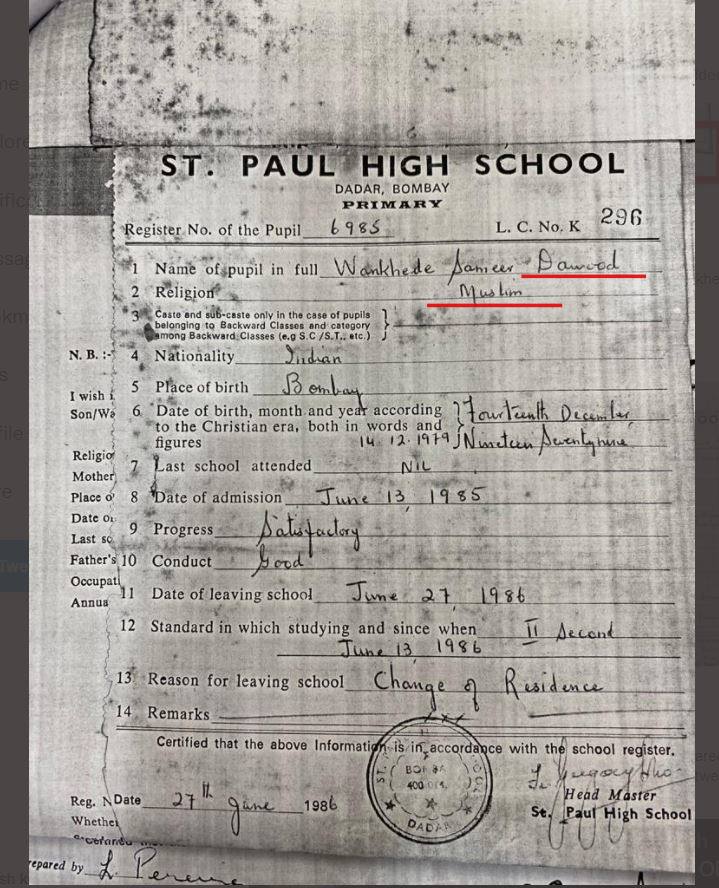 ST. PAUL HIGH SCHOOL
DADAR, BOMBAY
PRIMARY
Register No. of the Pupil 6985 L. C. No. K 296
1 Name of pupil in full Wankhede Sameer Dawood
2 Religion Muslim
3 Caste and sub-caste only in the case of pupils
belonging to Backward Classes and category
among Backward Classes (e.g S.C /S.T., etc.)
N. B. :- 4 Nationality Indian
5 Place of birth Bombay
I wish
Son/Wa 6 Date of birth, month and year according Fourteenth December
to the Christian era, both in words and
figures 14. 12. 1979 Nineteen Seventynine
Religio
7 Last school attended NIL
Mother
Place o 8 Date of admission June 13, 1985
Date o
Last sc 9 Progress Satisfactory
Father's 10 Conduct Good
Occupati
Annua 11 Date of leaving school June 27, 1986
12 Standard in which studying and since when II Second
June 13, 1986
13 Reason for leaving school Change of Residence
14 Remarks
Certified that the above Information is in accordance with the school register.
BOMBAY
400 014.
DADAR
Head Master
Reg. N Date 27th June 1986
St. Paul High School
Whether
repared by L. Pereira